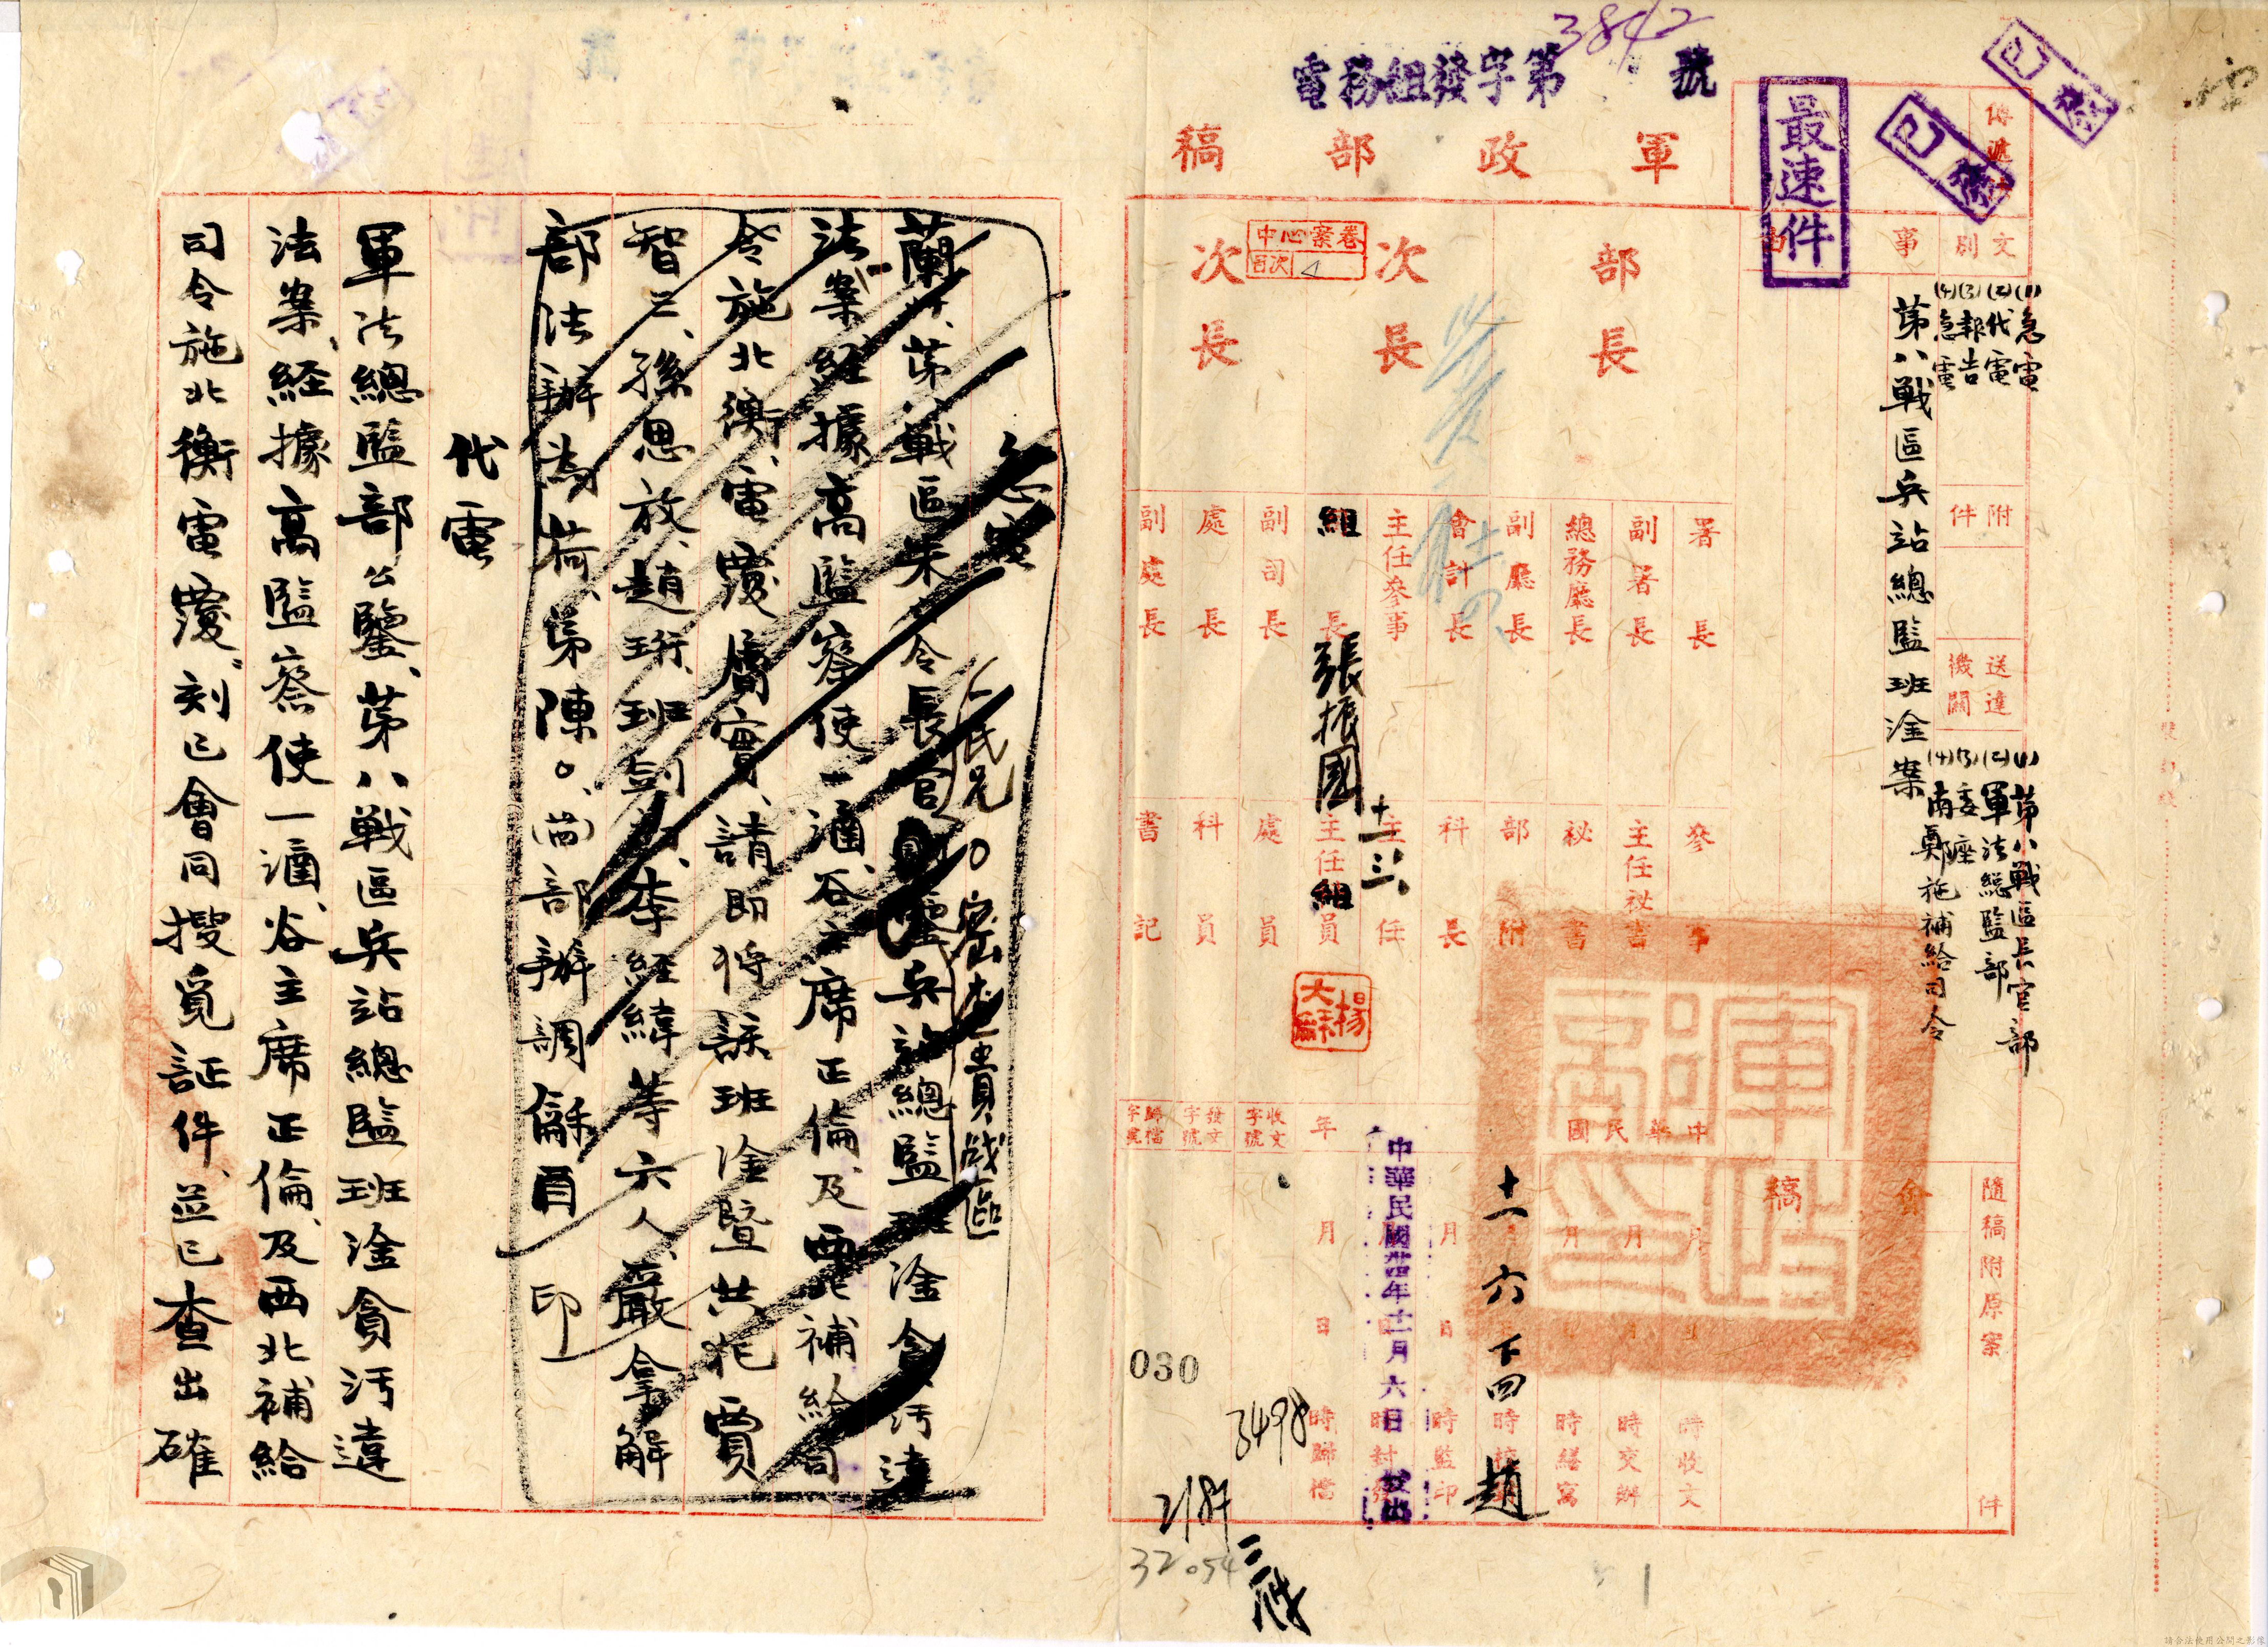 電務組發字第3842號
軍政部稿
最速件
已繳
已繳
傳遞法
文別
(1)急電
(2)代電
(3)報告
(4)急電
附件
送達機關
(1)第八戰區長官部
(2)軍法總監部
(3)委座
(4)南鄭施補給司令
事由
第八戰區兵站總監班淦案
會稿
隨稿附原案 件
部長
次長
次長
中心案卷
目次
4
署長
副署長
總務廳長
副廳長
會計長
主任參事
組長
張振國
十一 六
副司長
處長
副處長
參事
主任秘書
秘書
部附
科長
主任
主任組員
楊大龢
處員
科員
書記
軍政部印
中華民國 年
月 日 時收文
月 日 時交辦
月 日 時繕寫
十一 六 下四 趙
月 日 時監印
中華民國卅四年十一月六日 發出
月 日 時歸檔
收文字號
發文字號
歸檔字號
030
3498
32054
急電
蘭州、第八戰區朱令長官
一民兄0密貴戰區
兵站總監班淦貪污違
法案、經據高監察使一涵、谷主席正倫、及西北補給司
令施北衡、電覆屬實、請即將該班淦暨共犯賈
智三、孫思放、趙珩、班劍、李經緯等六人、嚴拿解
部法辦為荷、弟陳○、(茴)部辦調龢酉 印
代電
軍法總監部公鑒、第八戰區兵站總監班淦貪污違
法案、經據高監察使一涵、谷主席正倫、及西北補給
司令施北衡電覆、刻已會同搜覓証件、並已查出確